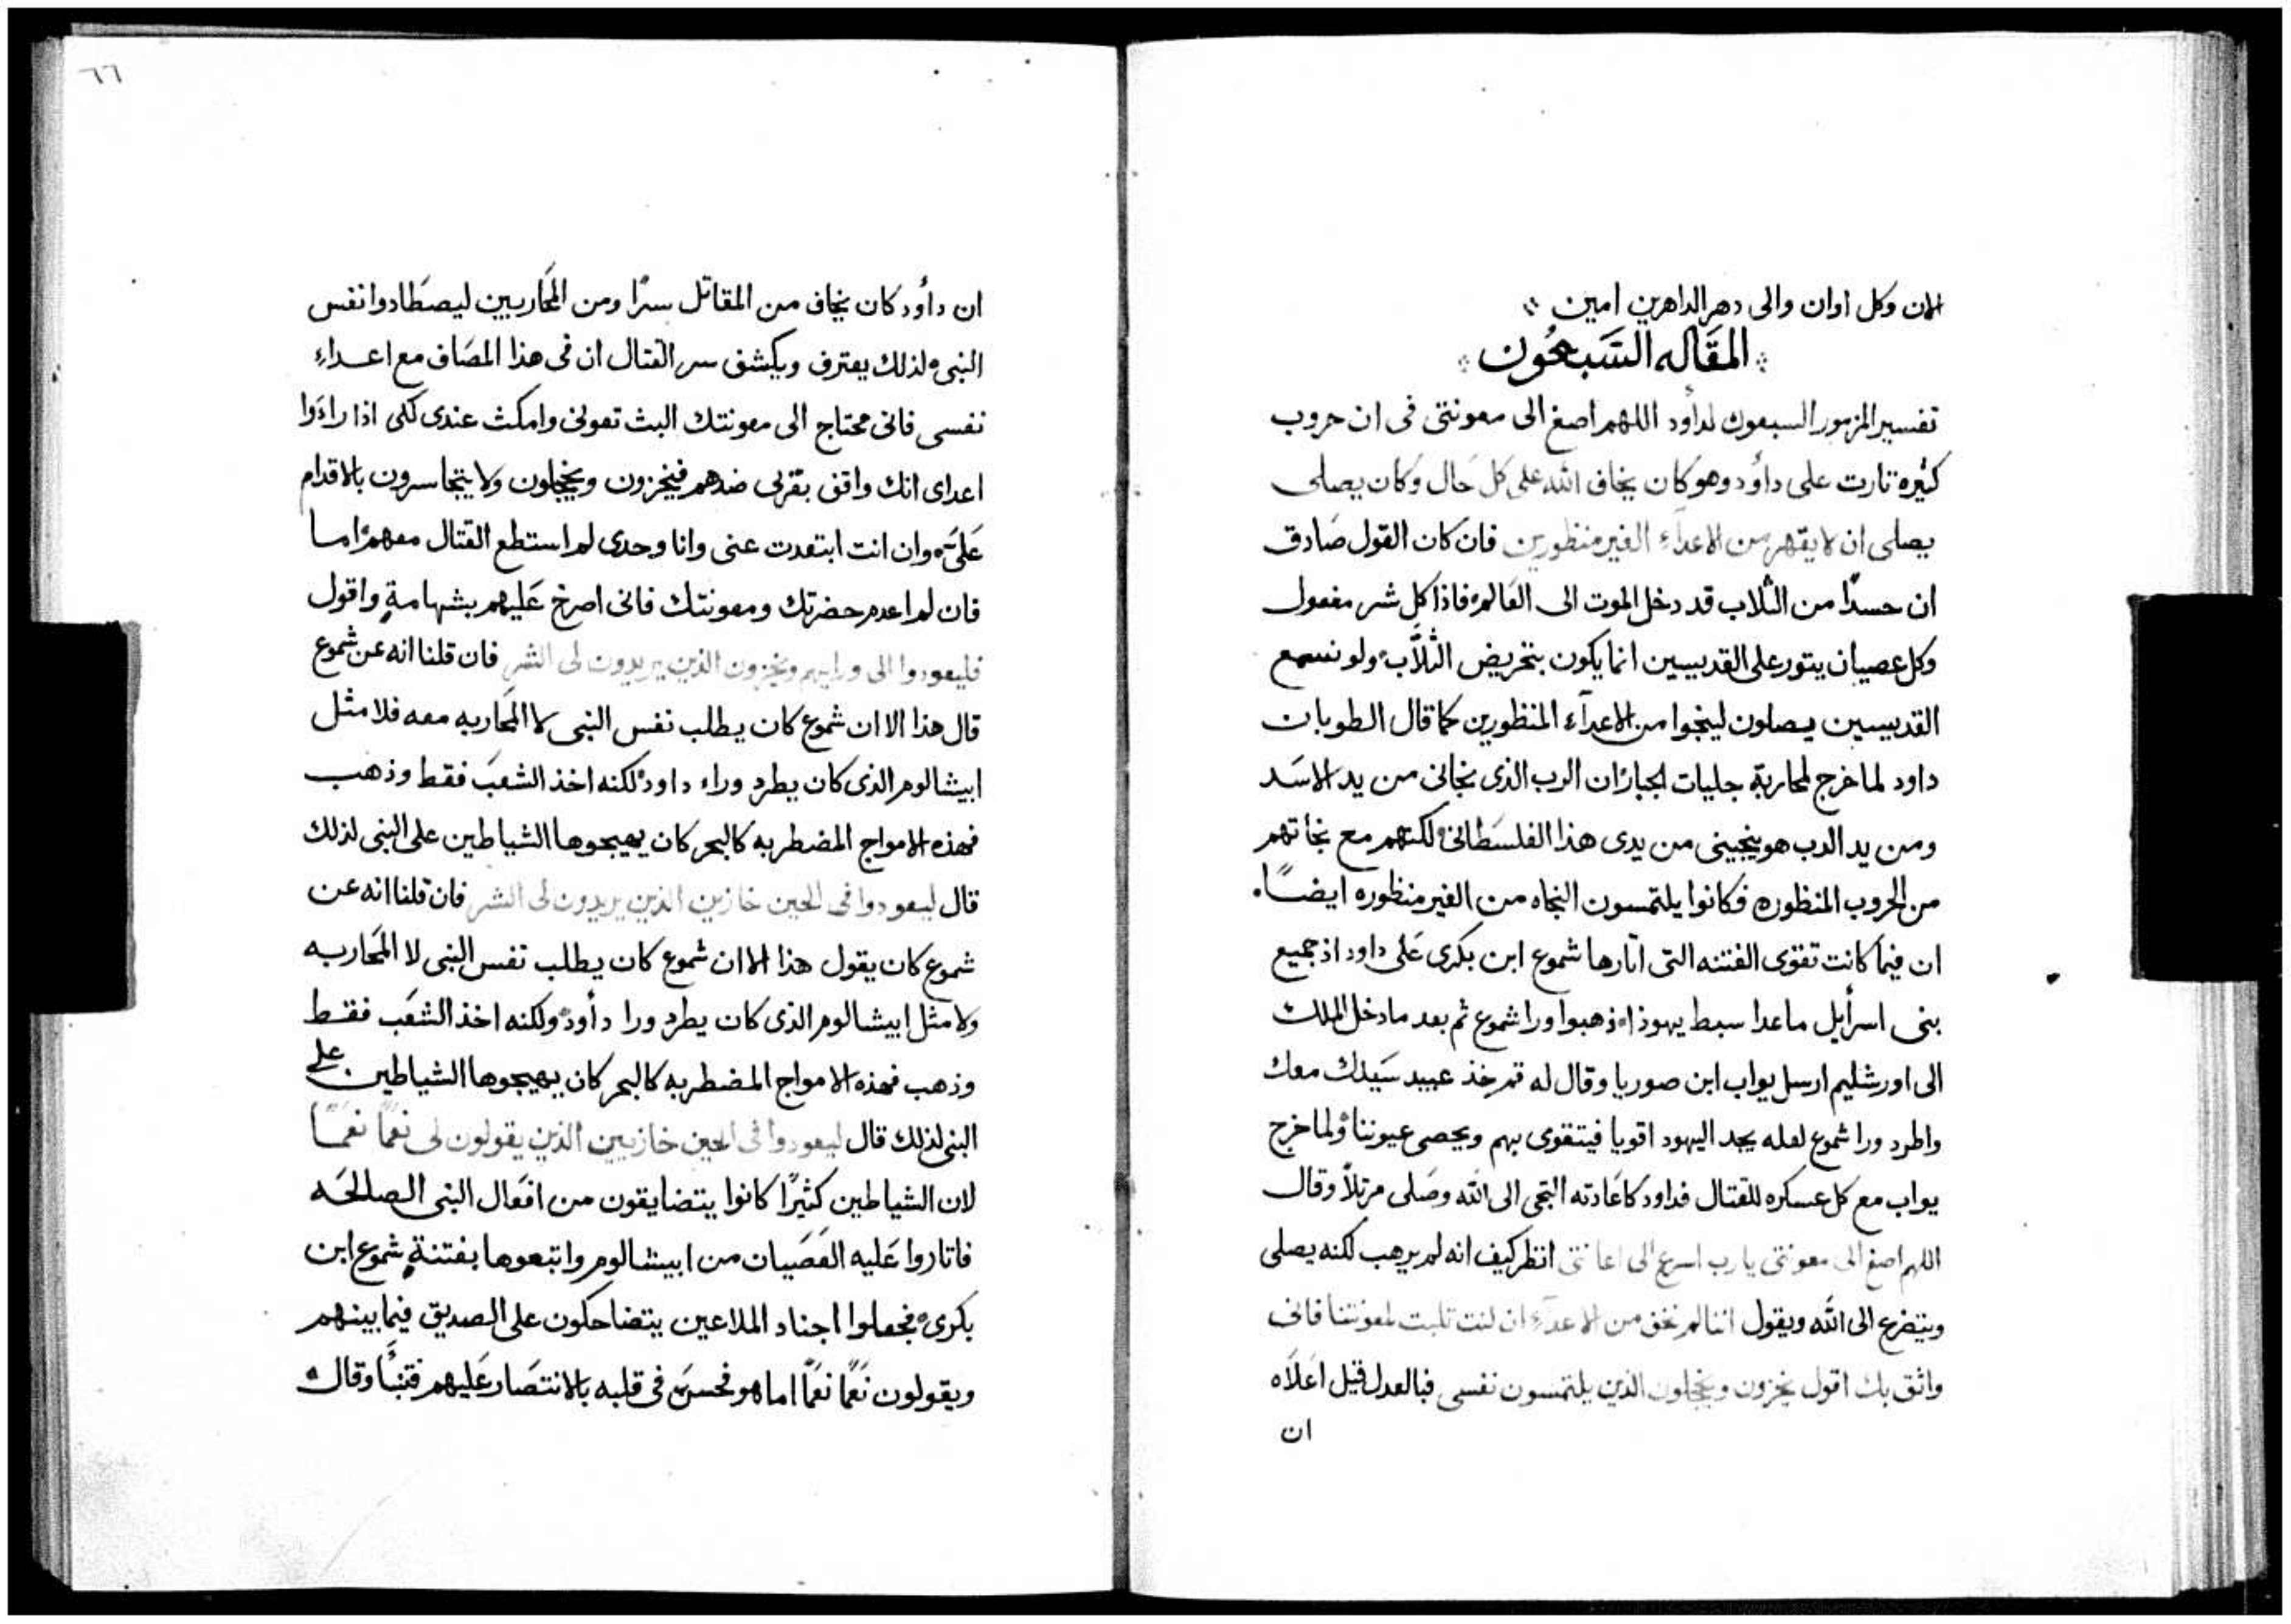 الان وكل اوان والى دهر الداهرين امين
المقاله السبعون
تفسير المزمور السبعون لداود اللهم اصغ الى معونتى فى ان حروب
كثيره ثارت على دأود وهو كان يخاف الله على كل حال وكان يصلى
يصلى ان لا يقهر من الاعدآء الغير منظورين فان كان القول صادق
ان حسدًا من الثلاب قد دخل الموت الى العالم فاذا كل شر مفعول
وكل عصيان يتور على القديسين انما يكون بتحريض الثلاب ولو نسمع
القديسين يصلون لينجوا من الاعدآء المنظورين كما قال الطوبان
داود لما خرج لمحاربة جليات الجبار ان الرب الذى نجانى من يد الاسد
ومن يد الدب هو ينجينى من يدى هذا الفلسطانى لكنهم مع نجاتهم
من الحروب المنظوره فكانوا يلتمسون النجاه من الغير منظوره ايضًا
ان فيما كانت تقوى الفتنه التى اثارها شموع ابن بكرى على داود اذ جميع
بنى اسرأيل ماعدا سبط يهوذا اذهبوا ورا شموع ثم بعد ما دخل الملك
الى اورشليم ارسل يواب ابن صوريا وقال له قم خذ عبيد سيدك معك
واطرد ورا شموع لعله يجد اليهود اقويا فيتقوى بهم ويحصى عيوننا ولما خرج
يواب مع كل عسكره للقتال فداود كاعادته التجى الى الله وصلى مرتلاً وقال
اللهم اصغ الى معونتى يارب اسرع الى اعانتى انظر كيف انه لم يرهب لكنه يصلى
ويتضرع الى الله ويقول اننا لم نخف من الاعدآء ان لنت تلبث لمعونتنا فانى
واثق بك اقول يخزون ويخجلون الذين يلتمسون نفسى فبالعدل قيل اعلاه
ان
٦٦
ان دأود كان يخاف من المقاتل سرًا ومن المحاربين ليصطادوا نفس
النبى لذلك يعترف ويكشف سر القتال ان فى هذا المصاف مع اعداءِ
نفسى فانى محتاج الى معونتك البث تعولنى وامكث عندى لكى اذا راءوا
اعداى انك واقف بقربى ضدهم فيخزون ويخجلون ولا يتجاسرون بالاقدام
علىّ وان انت ابتعدت عنى وانا وحدى لم استطع القتال معهم اما
فان لم اعدم حضرتك ومعونتك فانى اصرخ عليهم بشهامةٍ واقول
فليعودوا الى ورايهم ويخزون الذين يريدون لى الشر فان قلنا انه عن شموع
قال هذا الا ان شموع كان يطلب نفس النبى لا المحاربه معه فلا مثل
ابيشالوم الذى كان يطرد وراء داود لكنه اخذ الشعب فقط وذهب
فهذه الامواج المضطربه كالبحر كان يهيجوها الشياطين على النبى لذلك
قال ليعودوا فى الحين خازين الذين يريدون لى الشر فان قلنا انه عن
شموع كان يقول هذا الا ان شموع كان يطلب نفس النبى لا المحاربه
ولا مثل ابيشالوم الذى كان يطرد ورا دأود ولكنه اخذ الشعب فقط
وذهب فهذه الامواج المضطربه كالبحر كان يهيجوها الشياطين على
النبى لذلك قال ليعودوا فى الحين خازيين الذين يقولون لى نعمًا نعمًا
لان الشياطين كثيرًا كانوا يتضايقون من افعال النبى الصالحه
فاثاروا عليه العصيان من ابيشالوم واتبعوها بفتنةٍ شموع ابن
بكرى فجعلوا اجناد الملاعين يتضاحكون على الصديق فيما بينهم
ويقولون نعمًا نعمًا اما هو فحسن فى قلبه بالانتصار عليهم فتنبأ وقال